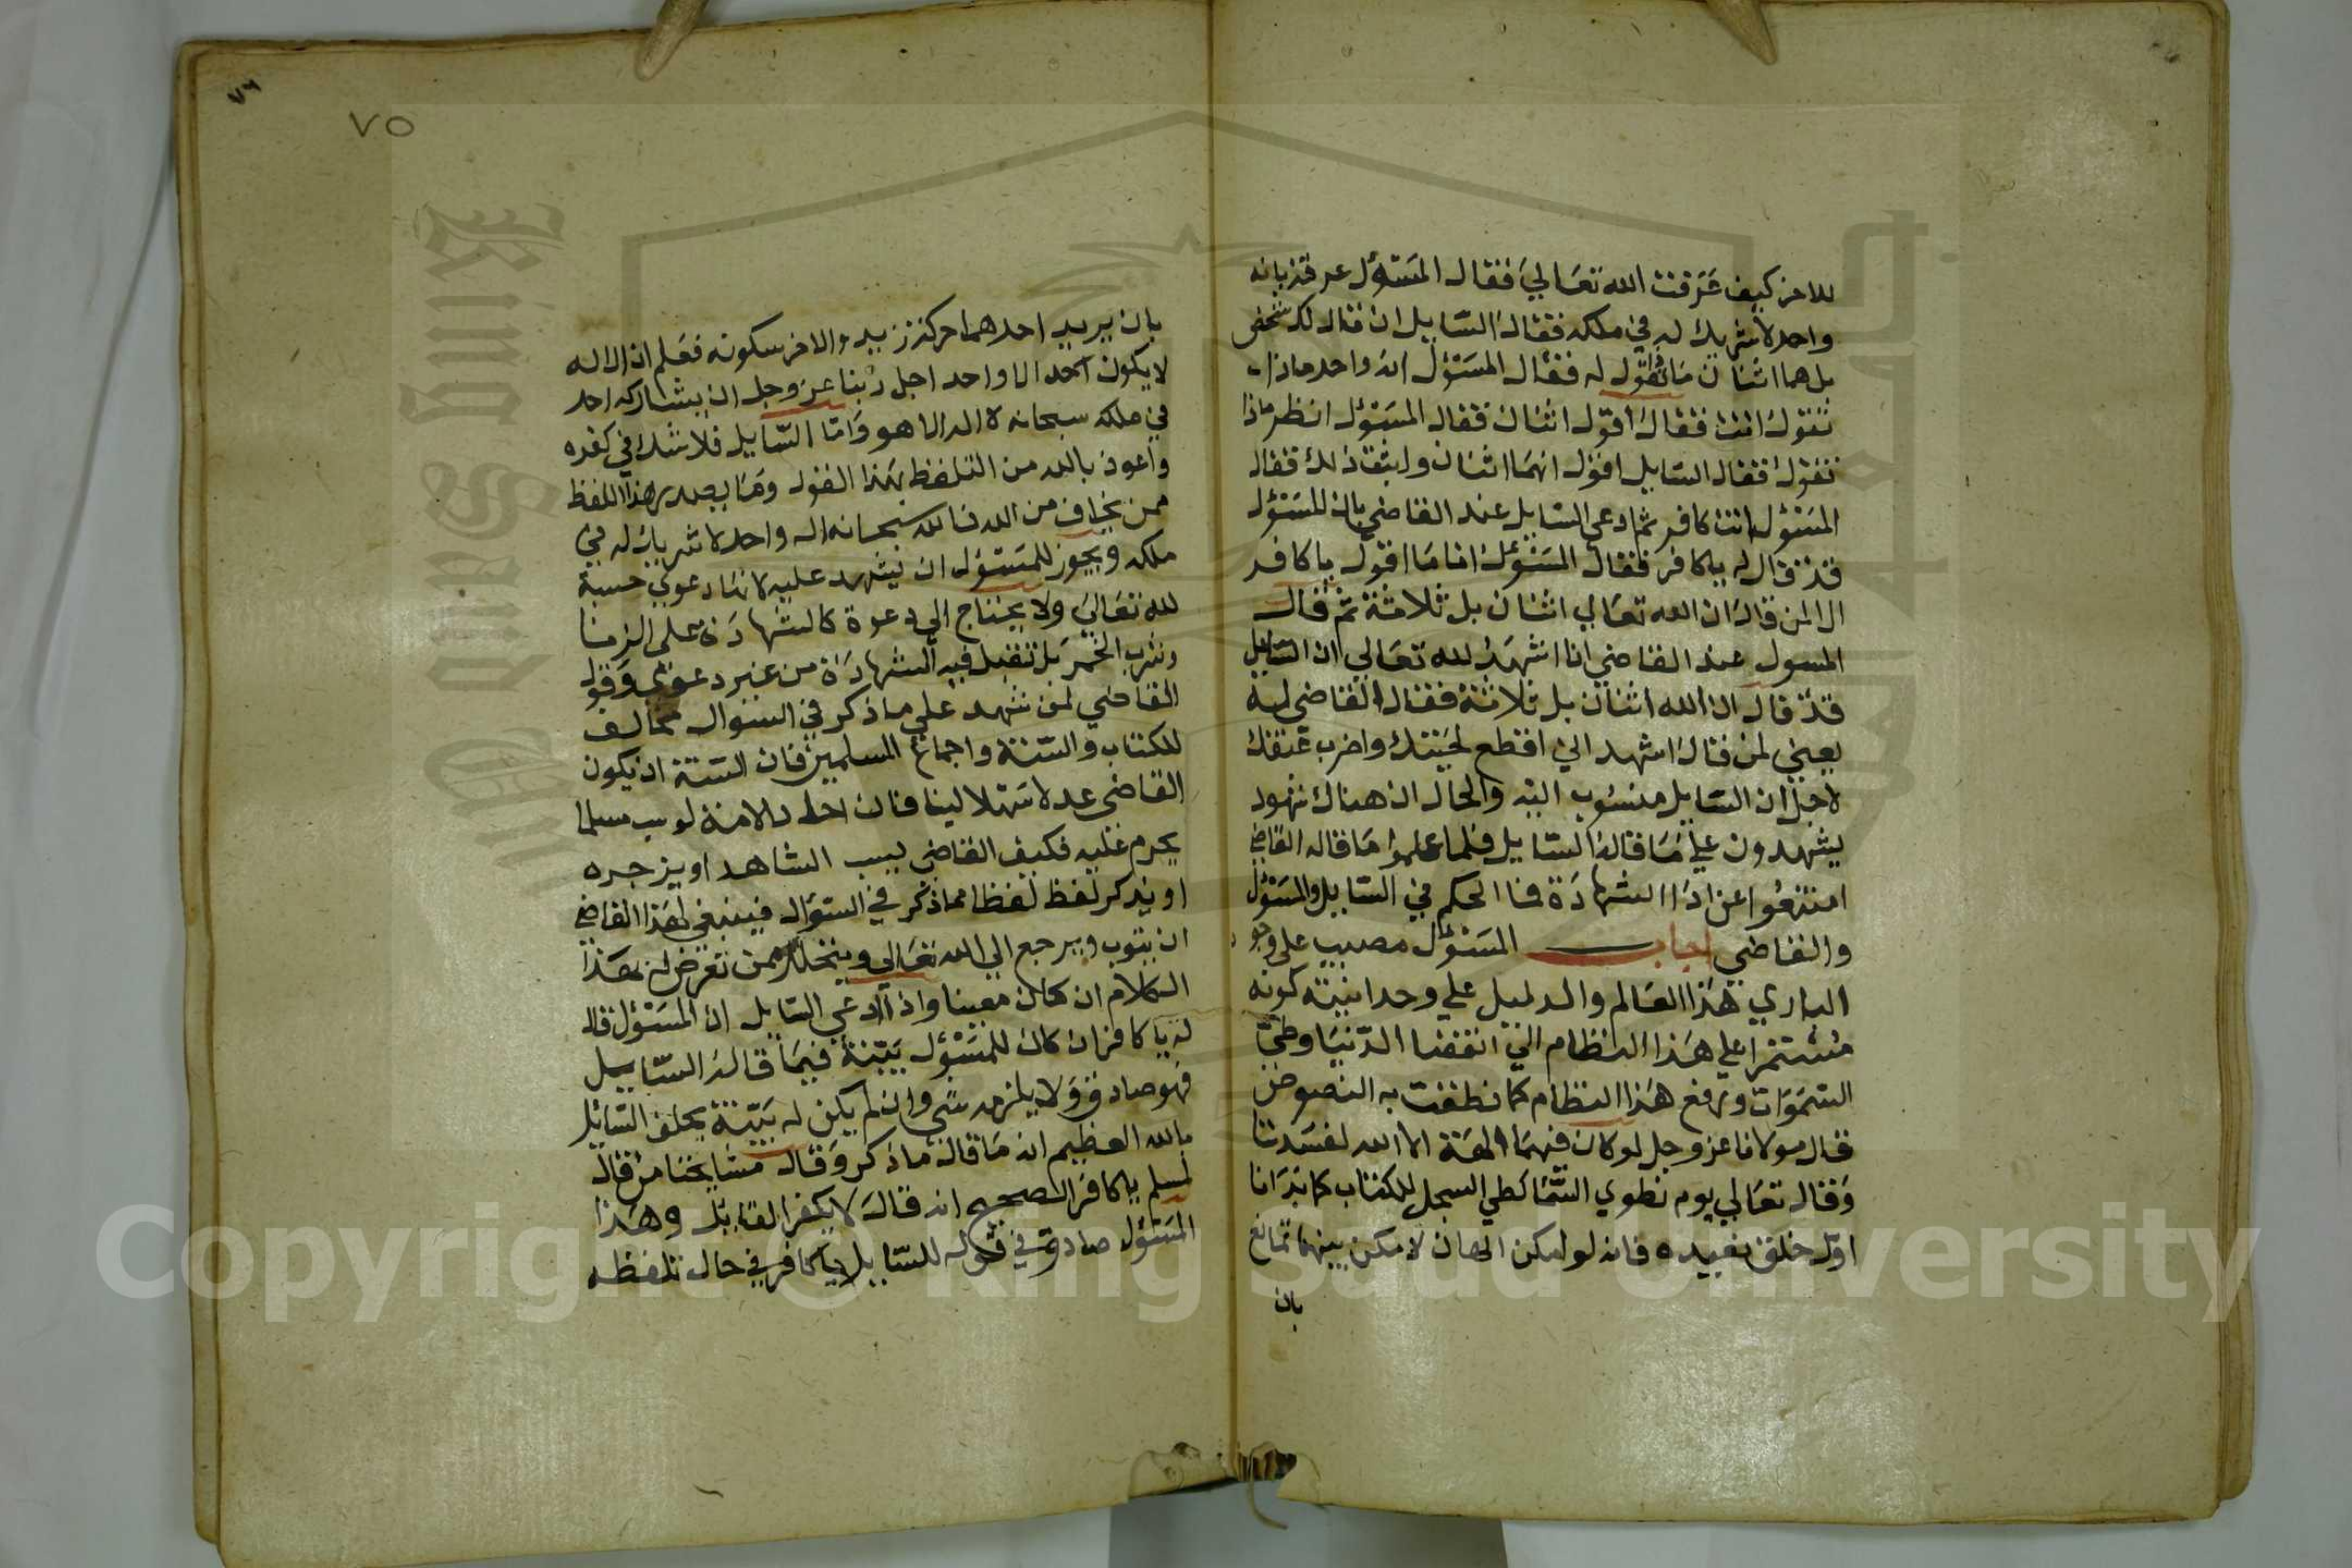 للاخر كيف عرفت الله تعالي فقال المسؤل عرفته بانه
واحد لا شريك له في ملكه فقال السايل ان قال لك شخص
بل هما اثنان ما تقول له فقال المسؤل انه واحد ماذا
تقول انت فقال اقول اثنان فقال المسؤل انظر ماذا
تقول فقال السايل اقول انهما اثنان فقال
المسؤل انت كافر ثم ادعي السايل عند القاضي بان المسؤل
قد قال له يا كافر فقال المسؤل انا ما اقول يا كافر
الا لمن قال ان الله تعالي اثنان بل ثلاثة ثم قال
المسول عند القاضي انا اشهد لله تعالي ان السايل
قد قال ان الله اثنان بل ثلاثة فقال القاضي له
يعني لمن قال اشهد اني اقطع لحيتك واضرب عنقك
لاجل ان السايل منسوب اليه والحال ان هناك شهود
يشهدون علي ما قاله السايل فلما علموا ما قاله القاضي
امتنعوا عن اداا الشهادة فما الحكم في السايل والمسؤل
والقاضي اجاب المسؤل مصيب علي وجود
الباري هذا العالم والدليل علي وحدانيته كونه
مستمرا علي هذا النظام الي انقضا الدنيا وطي
السموات ورفع هذا النظام كما نطقت به النصوص
قال مولانا عز وجل لو كان فيهما الهة الا الله لفسدتا
وقال تعالي يوم نطوي السما كطي السجل للكتاب كما بدانا
اول خلق نعيده فانه لو امكن الهان لامكن بينهما تمانع
بان
٧٥
٧٦
بان يريد احدهما حركة زيد والاخر سكونه فعلم ان الاله
لا يكون احد الا واحد اجل ربنا عز وجل ان يشاركه احد
في ملكه سبحانه لا اله الا هو واما السايل فلا شك في كفره
واعوذ بالله من التلفظ بهذا القول وما يصدر هذا اللفظ
ممن يخاف من الله فالله سبحانه اله واحد لا شريك له في
ملكه ويجوز للمسؤل ان يشهد عليه لانها دعوي حسبة
لله تعالي ولا يحتاج الي دعوة كالشهادة علي الزنا
وشرب الخمر بل تقبل فيه الشهادة من غير دعوي وقول
القاضي لمن شهد علي ما ذكر في السوال مخالف
للكتاب والسنة واجماع المسلمين فان السنة ان يكون
القاضي عدلا سهلا لينا فان احد الامة لو سب مسلما
يحرم عليه فكيف القاضي يسب الشاهد او يزجره
او يذكر لفظ لفظا مما ذكر في السؤال فينبغي لهذا القاضي
ان يتوب ويرجع الي الله تعالي ويتحلل ممن تعرض له بهذا
الكلام ان كان معينا واذا ادعي السايل ان المسؤل قال
له يا كافر ان كان للمسؤل بينة فيما قاله السايل
فهو صادق ولا يلزمه شي وان لم يكن له بينة يحلف السايل
بالله العظيم انه ما قال ما ذكر وقال مشايخنا من قال
لمسلم يا كافر الصحيح انه قال لا يكفر القايل وهذا
المسؤل صادق في قوله للسايل يا كافر في حال تلفظه
Copyright © King Saud University
King Saud University